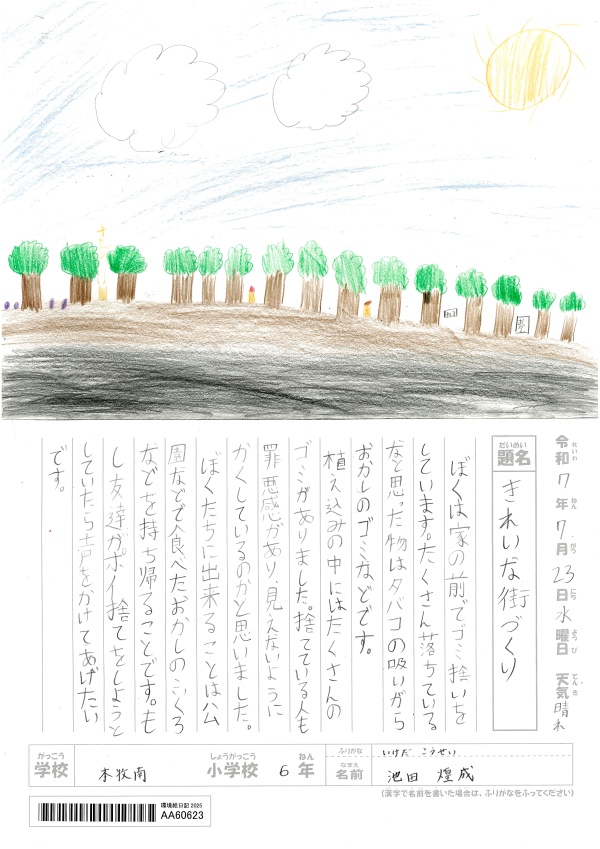 令和7年7月23日水曜日 天気晴れ
れいわ ねん がつ にち ようび てんき
だいめい
題名 きれいな街づくり
ぼくは家の前でゴミ捨いを
しています。たくさん落ちている
なと思った物はタバコの吸いがら
おかしのゴミなどです。
植え込みの中にはたくさんの
ゴミがありました。捨てている人も
罪悪感があり、見えないように
かくしているのかと思いました。
ぼくたちに出来ることは公
園などで食べたおかしのふくろ
などを持ち帰ることです。も
し友達がポイ捨てをしようと
していたら声をかけてあげたい
です。
がっこう しょうがっこう ねん ふりがな いけだ こうせい
学校 本牧南 小学校 6年 なまえ 名前 池田 煌成
(漢字で名前を書いた場合は、ふりがなをふってください)
環境絵日記 2025
AA60623